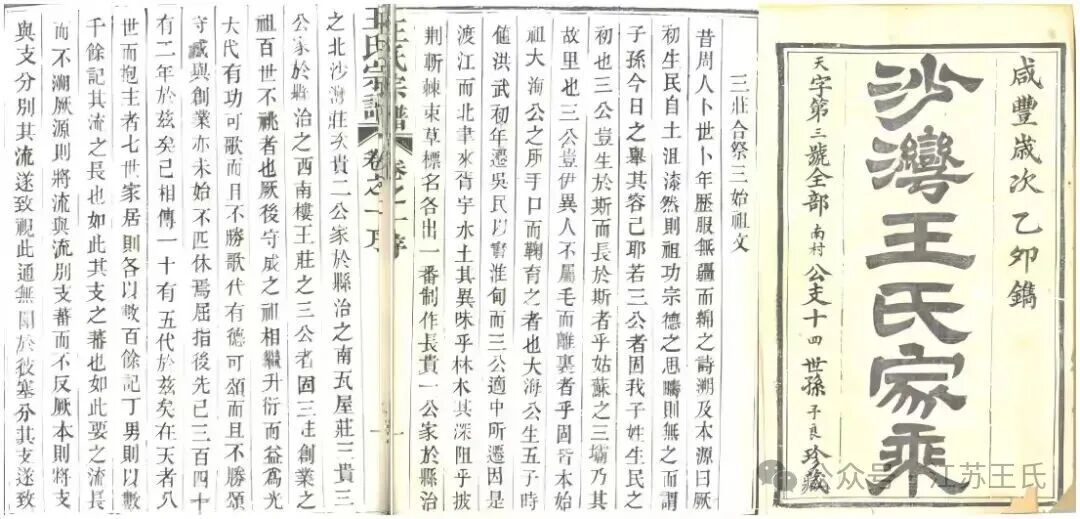 咸豐歲次乙卯鐫
沙灣王氏家乘
天字第三號全部南村公支十四世孫子良珍藏
三莊合祭三始祖文
昔周人卜世卜年歷服無疆而綿之詩溯及本源曰厥
初生民自土沮漆然則祖功宗德之思疇則無之而謂
子孫今日之舉其容已耶若三公者固我子姓生民之
初也三公豈生於斯而長於斯者乎姑蘇之三壩乃其
故里也三公豈伊異人不屬毛而離裏者乎固皆本始
祖大海公之所手口而鞠育之者也大海公生五子時
值洪武初年遷吳民以實淮甸而三公適中所遷因是
渡江而北聿來胥宇水土其異味乎林木其深阻乎披
荆斬棘束草標名各出一番制作長貴一公家於縣治
王氏宗譜
卷之一序
之北沙灣莊次貴二公家於縣治之南瓦屋莊三貴三
公家於縣治之西南樓王莊之三公者固三莊創業之
祖百世不祧者也厥後守成之祖相繼升衍而益爲光
大代有功可歌而且不勝歌代有德可頌而且不勝頌
守成與創業亦未始不匹休焉屈指後先已三百四十
有二年於茲矣已相傳一十有五代於茲矣在天者八
世而抱主者七世家居則各以數百餘記丁男則以數
千餘記其流之長也如此其支之蕃也如此要之流長
而不溯厥源則將流與流別支蕃而不反厥本則將支
與支分別其流遂致視此通無關於彼塞分其支遂致
公众号·江苏王氏